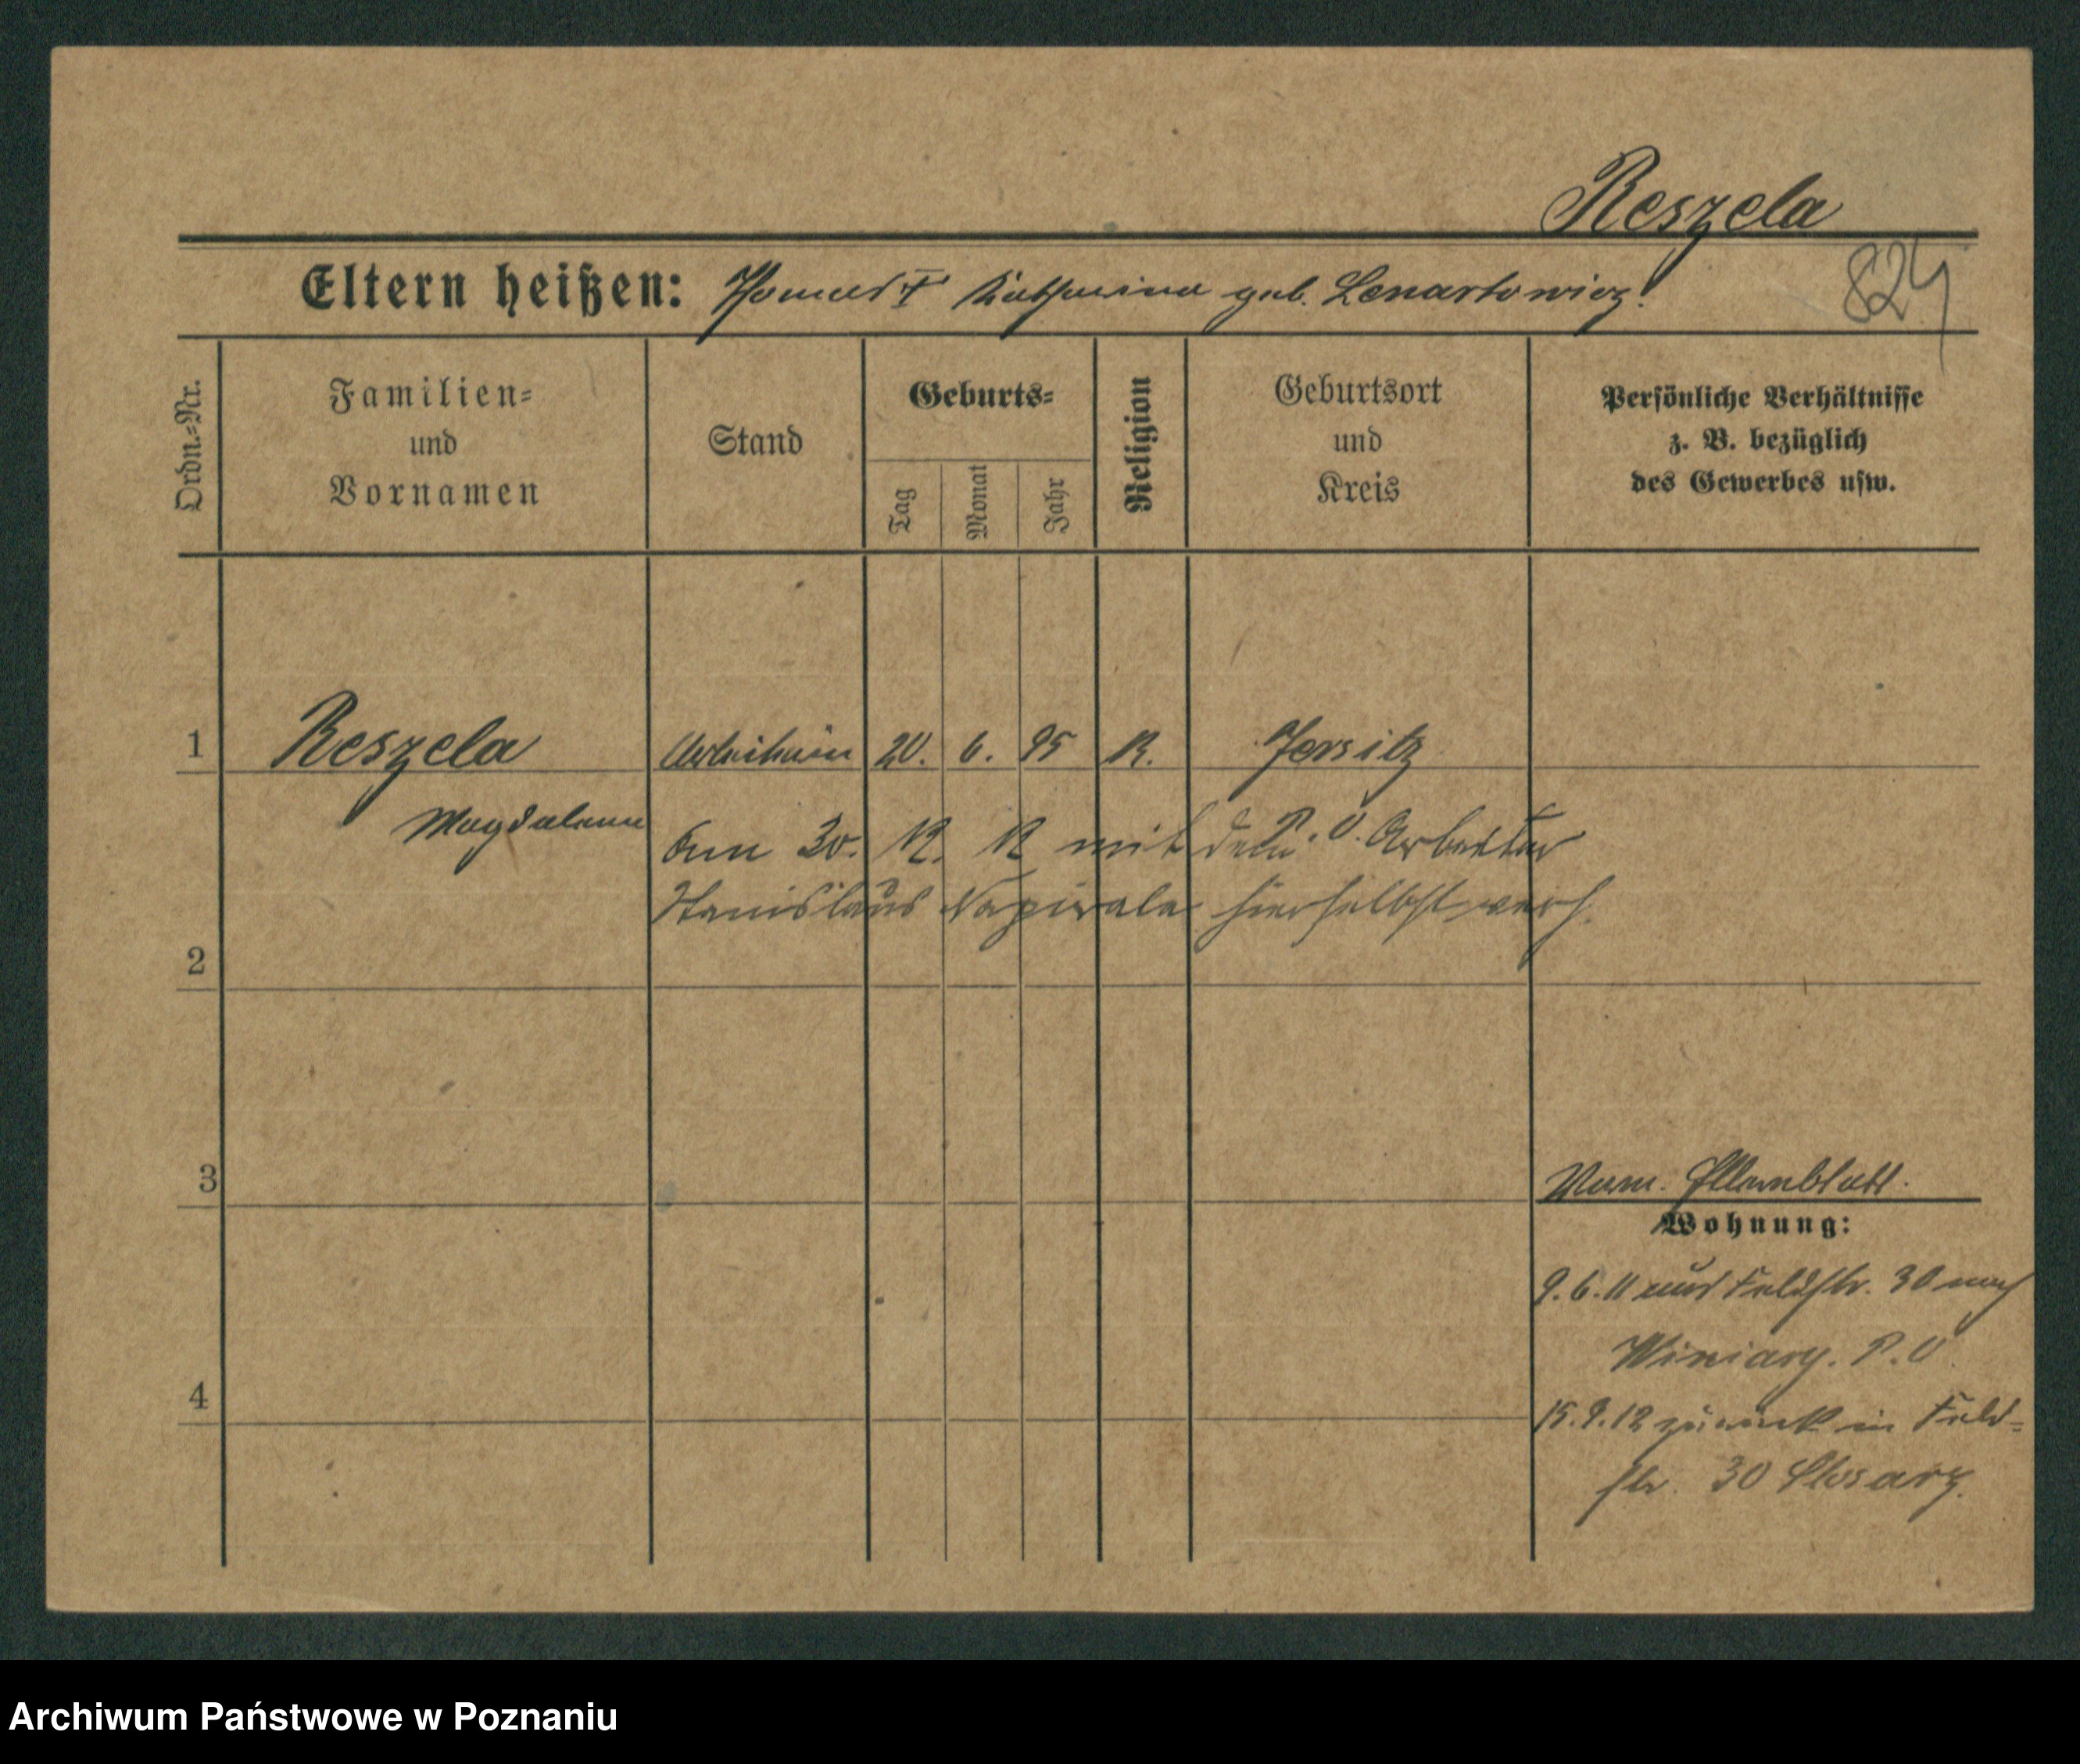 Reszela
Eltern heißen: Thomas † Katharina geb. Lenartowicz.
824
Ordn.-Nr.
Familien-
und
Vornamen
Stand
Geburts-
Tag
Monat
Jahr
Religion
Geburtsort
und
Kreis
Persönliche Verhältnisse
z. B. bezüglich
des Gewerbes usw.
1 Reszela Arbeiterin 20. 6. 95 K. Jersitz
Magdalena
Am 30. 12. mit dem P. O. Arbeiter
Stanislaus Napierala hierselbst verh.
2
3
Elternblatt.
Wohnung:
9.6.11 aus Feldstr. 30 nach
Winiary. P. O.
4
15.9.12 zurück in Feld-
str. 30 Slosarz.
Archiwum Państwowe w Poznaniu